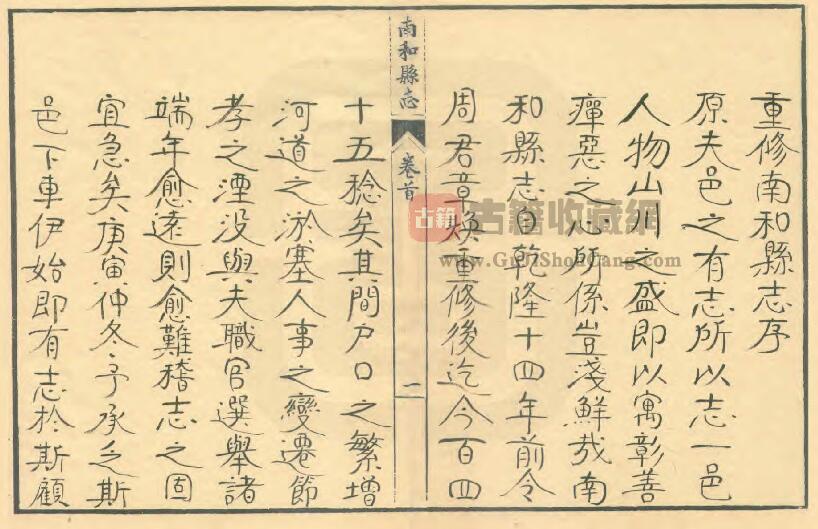 重修南和縣志序
原夫邑之有志所以志一邑
人物山川之盛即以寓彰善
癉惡之心所係豈淺鮮哉南
和縣志自乾隆十四年前令
周君章煥重修後迄今百四
南和縣志
卷首
一
十五稔矣其間戶口之繁增
河道之淤塞人事之變遷節
孝之湮沒與夫職官選舉諸
端年愈遠則愈難稽志之固
宜急矣庚寅仲冬予承乏斯
邑下車伊始即有志於斯顧
古籍
古籍收藏網
www.GuJiShouCang.com